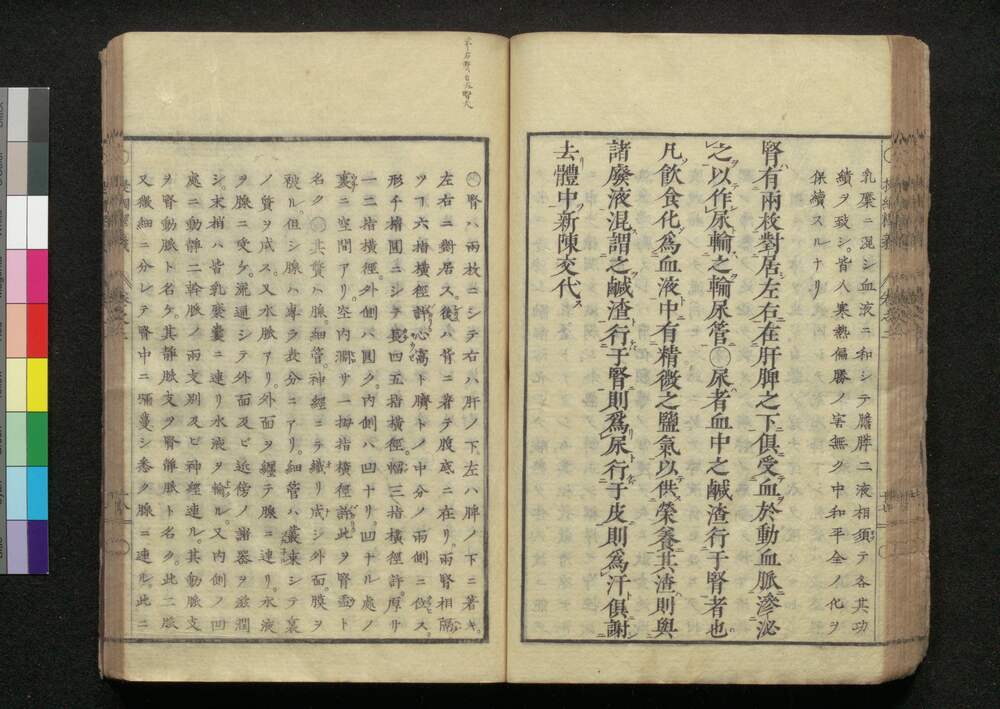 乳糜ニ混シ血液ニ和シテ膽膵二液相須テ各其功
績ヲ致シ。皆人寒熱偏勝ノ害無ク中和平全ノ化ヲ
供績スルナリ
腎ハ有兩枚對居左右在肝脾之下俱受血於動血脈滲泌
之以作尿輸之輸尿管○尿者血中之鹹渣行于腎者也
凡飲食化為血液中有精微之鹽氣以供榮養其渣則與
諸廢液混謂之鹹渣行于腎則為尿行于皮則為汗俱謝
去體中新陳交代ス
○腎ハ兩枚ニシテ右ハ肝ノ下。左ハ脾ノ下ニ著キ。
左右ニ對居ス。後ハ背ニ著テ腹底ニ在リ。兩腎相隔
ツ丁六指橫徑許心窩ト臍トノ中分ノ兩側ニ位ス。
形チ橢圓ニシテ長四五指橫徑。幅三指橫徑許。厚サ
一二指橫徑。外側ハ圓ク。內側ハ凹ナリ。凹ナル處ノ
裏ニ空間アリ。空內濶サ一拇指橫徑許。此ヲ腎盂ト
名ク○其質ハ腺。細管。神經ニテ織リ成シ外面。膜ヲ
被ル。但シ腺ハ專ラ表分ニアリ。細管ハ叢束シテ裏
ノ質ヲ成ス。又水脈アリ。外面ヲ纏テ腺ニ連リ。水液
ヲ腺ニ受ケ。流通シテ外面及ビ近傍ノ諸器ヲ滋潤
シ。末梢ハ皆乳糜囊ニ連リ水液ヲ輸ル。又內側ノ凹
處ニ動靜二幹脈ノ兩支別及ビ神經連ル。其動脈支
ヲ腎動脈ト名ケ。其靜脈支ヲ腎靜脈ト名ク。此二脈
又微細ニ分レテ腎中ニ彌蔓シ悉ク腺ニ連ル。此ニ